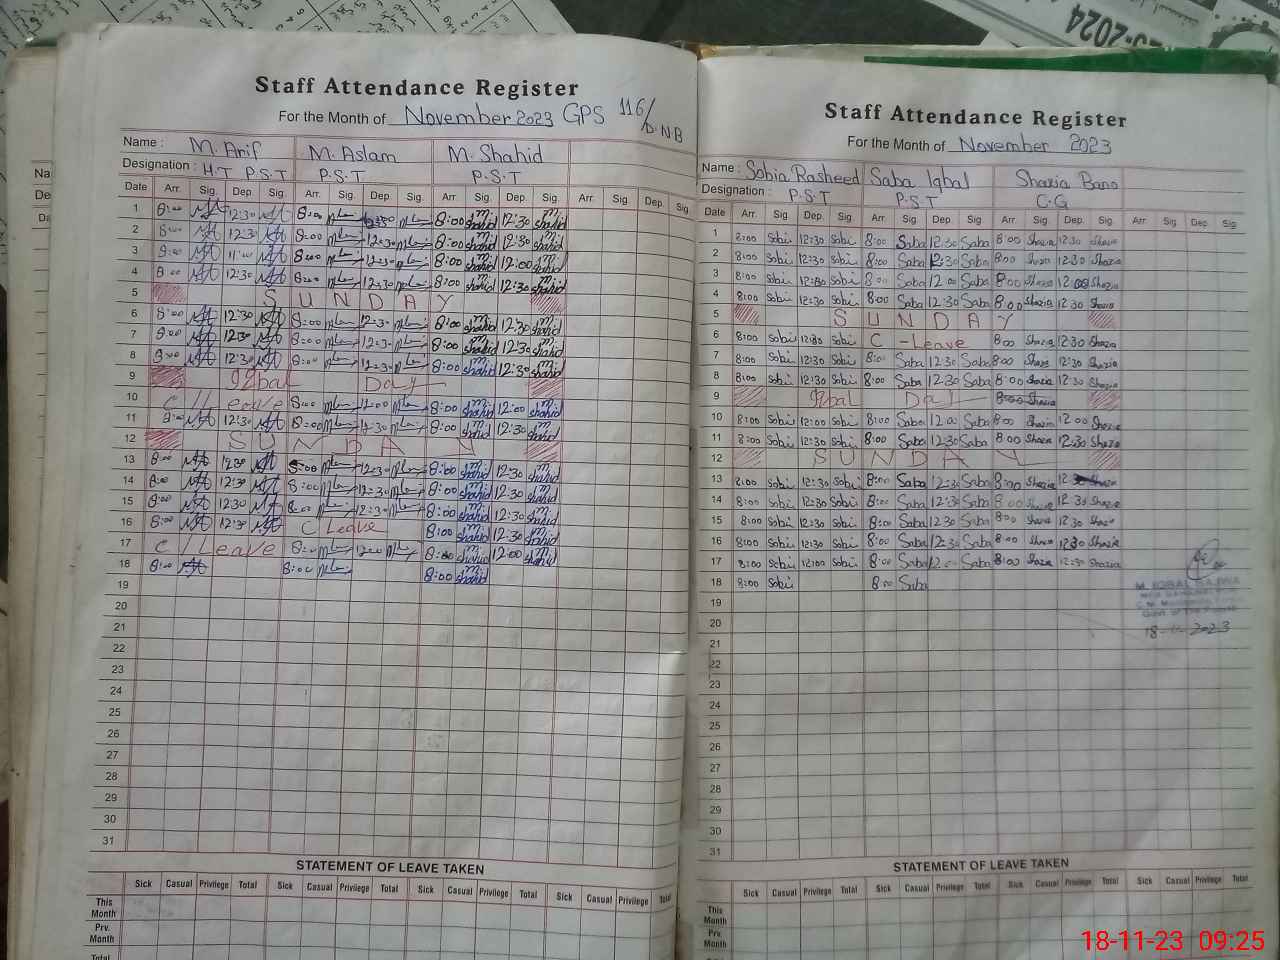 Staff Attendance Register
For the Month of November 2023 GPS 116/D.NB
Name : M. Arif M. Aslam M. Shahid
Designation : H.T P.S.T P.S.T P.S.T
Date Arr. Sig. Dep. Sig. Arr. Sig. Dep. Sig. Arr. Sig. Dep. Sig. Arr. Sig Dep. Sig.
1 8:00 12:30 8:00 12:30 8:00 M shahid 12:30 M shahid
2 8:00 12:30 8:00 12:30 8:00 M shahid 12:30 M shahid
3 8:00 11:00 8:00 12:00 8:00 M shahid 12:00 M shahid
4 8:00 12:30 8:00 12:30 8:00 M shahid 12:30 M shahid
5 SUNDAY
6 8:00 12:30 8:00 12:30 8:00 M shahid 12:30 M shahid
7 8:00 12:30 8:00 12:30 8:00 M shahid 12:30 M shahid
8 8:00 12:30 8:00 12:30 8:00 M shahid 12:30 M shahid
9 Iqbal Day
10 C/Leave 8:00 12:00 8:00 M shahid 12:00 M shahid
11 8:00 12:30 8:00 12:30 8:00 M shahid 12:30 M shahid
12 SUNDAY
13 8:00 12:30 8:00 12:30 8:00 M shahid 12:30 M shahid
14 8:00 12:30 8:00 12:30 8:00 M shahid 12:30 M shahid
15 8:00 12:30 8:00 12:30 8:00 M shahid 12:30 M shahid
16 8:00 12:30 C Leave 8:00 M shahid 12:30 M shahid
17 C/Leave 8:00 12:00 8:00 M shahid 12:00 M shahid
18 8:00 8:00 8:00 M shahid
19
20
21
22
23
24
25
26
27
28
29
30
31
STATEMENT OF LEAVE TAKEN
Sick Casual Privilege Total Sick Casual Privilege Total Sick Casual Privilege Total Sick Casual Privilege Total
This Month
Prv. Month
Total
Staff Attendance Register
For the Month of November 2023
Name : Sobia Rasheed Saba Iqbal Shazia Bano
Designation : P.S.T P.S.T C.G
Date Arr. Sig. Dep. Sig. Arr. Sig. Dep. Sig. Arr. Sig. Dep. Sig. Arr. Sig. Dep. Sig
1 8:00 Sobi 12:30 Sobi 8:00 Saba 12:30 Saba 8:00 Shazia 12:30 Shazia
2 8:00 Sobi 12:30 Sobi 8:00 Saba 12:30 Saba 8:00 Shazia 12:30 Shazia
3 8:00 Sobi 12:00 Sobi 8:00 Saba 12:00 Saba 8:00 Shazia 12:00 Shazia
4 8:00 Sobi 12:30 Sobi 8:00 Saba 12:30 Saba 8:00 Shazia 12:30 Shazia
5 SUNDAY
6 8:00 Sobi 12:30 Sobi C-Leave 8:00 Shazia 12:30 Shazia
7 8:00 Sobi 12:30 Sobi 8:00 Saba 12:30 Saba 8:00 Shazia 12:30 Shazia
8 8:00 Sobi 12:30 Sobi 8:00 Saba 12:30 Saba 8:00 Shazia 12:30 Shazia
9 Iqbal Day 8:00 Shazia
10 8:00 Sobi 12:00 Sobi 8:00 Saba 12:00 Saba 8:00 Shazia 12:00 Shazia
11 8:00 Sobi 12:30 Sobi 8:00 Saba 12:30 Saba 8:00 Shazia 12:30 Shazia
12 SUNDAY
13 8:00 Sobi 12:30 Sobi 8:00 Saba 12:30 Saba 8:00 Shazia 12:30 Shazia
14 8:00 Sobi 12:30 Sobi 8:00 Saba 12:30 Saba 8:00 Shazia 12:30 Shazia
15 8:00 Sobi 12:30 Sobi 8:00 Saba 12:30 Saba 8:00 Shazia 12:30 Shazia
16 8:00 Sobi 12:30 Sobi 8:00 Saba 12:30 Saba 8:00 Shazia 12:30 Shazia
17 8:00 Sobi 12:00 Sobi 8:00 Saba 12:00 Saba 8:00 Shazia 12:30 Shazia
18 8:00 Sobi 8:00 Saba
19
20
21
22
23
24
25
26
27
28
29
30
31
M. IQBAL
18-11-2023
STATEMENT OF LEAVE TAKEN
Sick Casual Privilege Total Sick Casual Privilege Total Sick Casual Privilege Total Sick Casual Privilege Total
This Month
Prv. Month
18-11-23 09:25